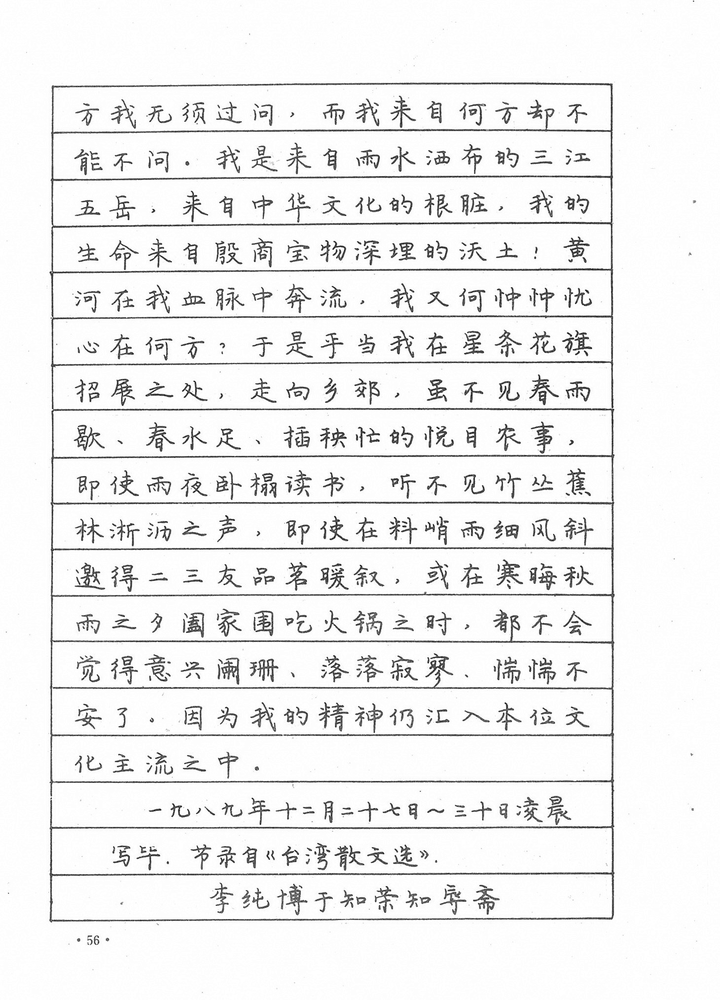 方我无须过问，而我来自何方却不
能不问。我是来自雨水洒布的三江
五岳，来自中华文化的根脏，我的
生命来自殷商宝物深埋的沃土！黄
河在我血脉中奔流，我又何忡忡忧
心在何方？于是乎当我在星条花旗
招展之处，走向乡郊，虽不见春雨
歇、春水足、插秧忙的悦目农事，
即使雨夜卧榻读书，听不见竹丛蕉
林淅沥之声，即使在料峭雨细风斜
邀得二三友品茗暖叙，或在寒晦秋
雨之夕阖家围吃火锅之时，都不会
觉得意兴阑珊、落落寂寥、惴惴不
安了。因为我的精神仍汇入本位文
化主流之中。
一九八九年十二月二十七日～三十日凌晨
写毕．节录自《台湾散文选》．
李纯博于知荣知辱斋
·56·